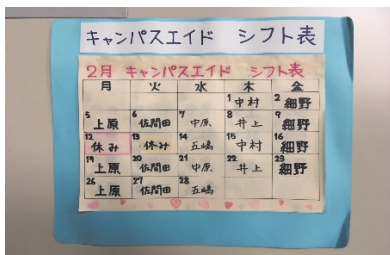 キャンパスエイド シフト表
2月 キャンパスエイド シフト表
月 火 水 木 金
1 中村 2 細野
5 上原 6 佐間田 7 中原 8 井上 9 細野
12 休み 13 休み 14 五嶋 15 中村 16 細野
19 上原 20 佐間田 21 中原 22 井上 23 細野
26 上原 27 佐間田 28 五嶋